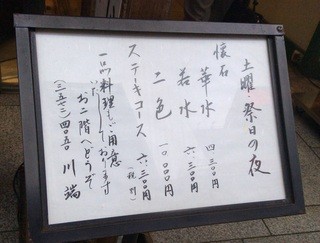 土曜・祭日の夜
懐石
華水 四三〇〇円
若水 六.三〇〇円
二色 一〇.〇〇〇円
ステーキコース 六.三〇〇円
(税別)
一品料理もご用意
いたしております
お二階へどうぞ
(三五七三)四〇五〇 川端